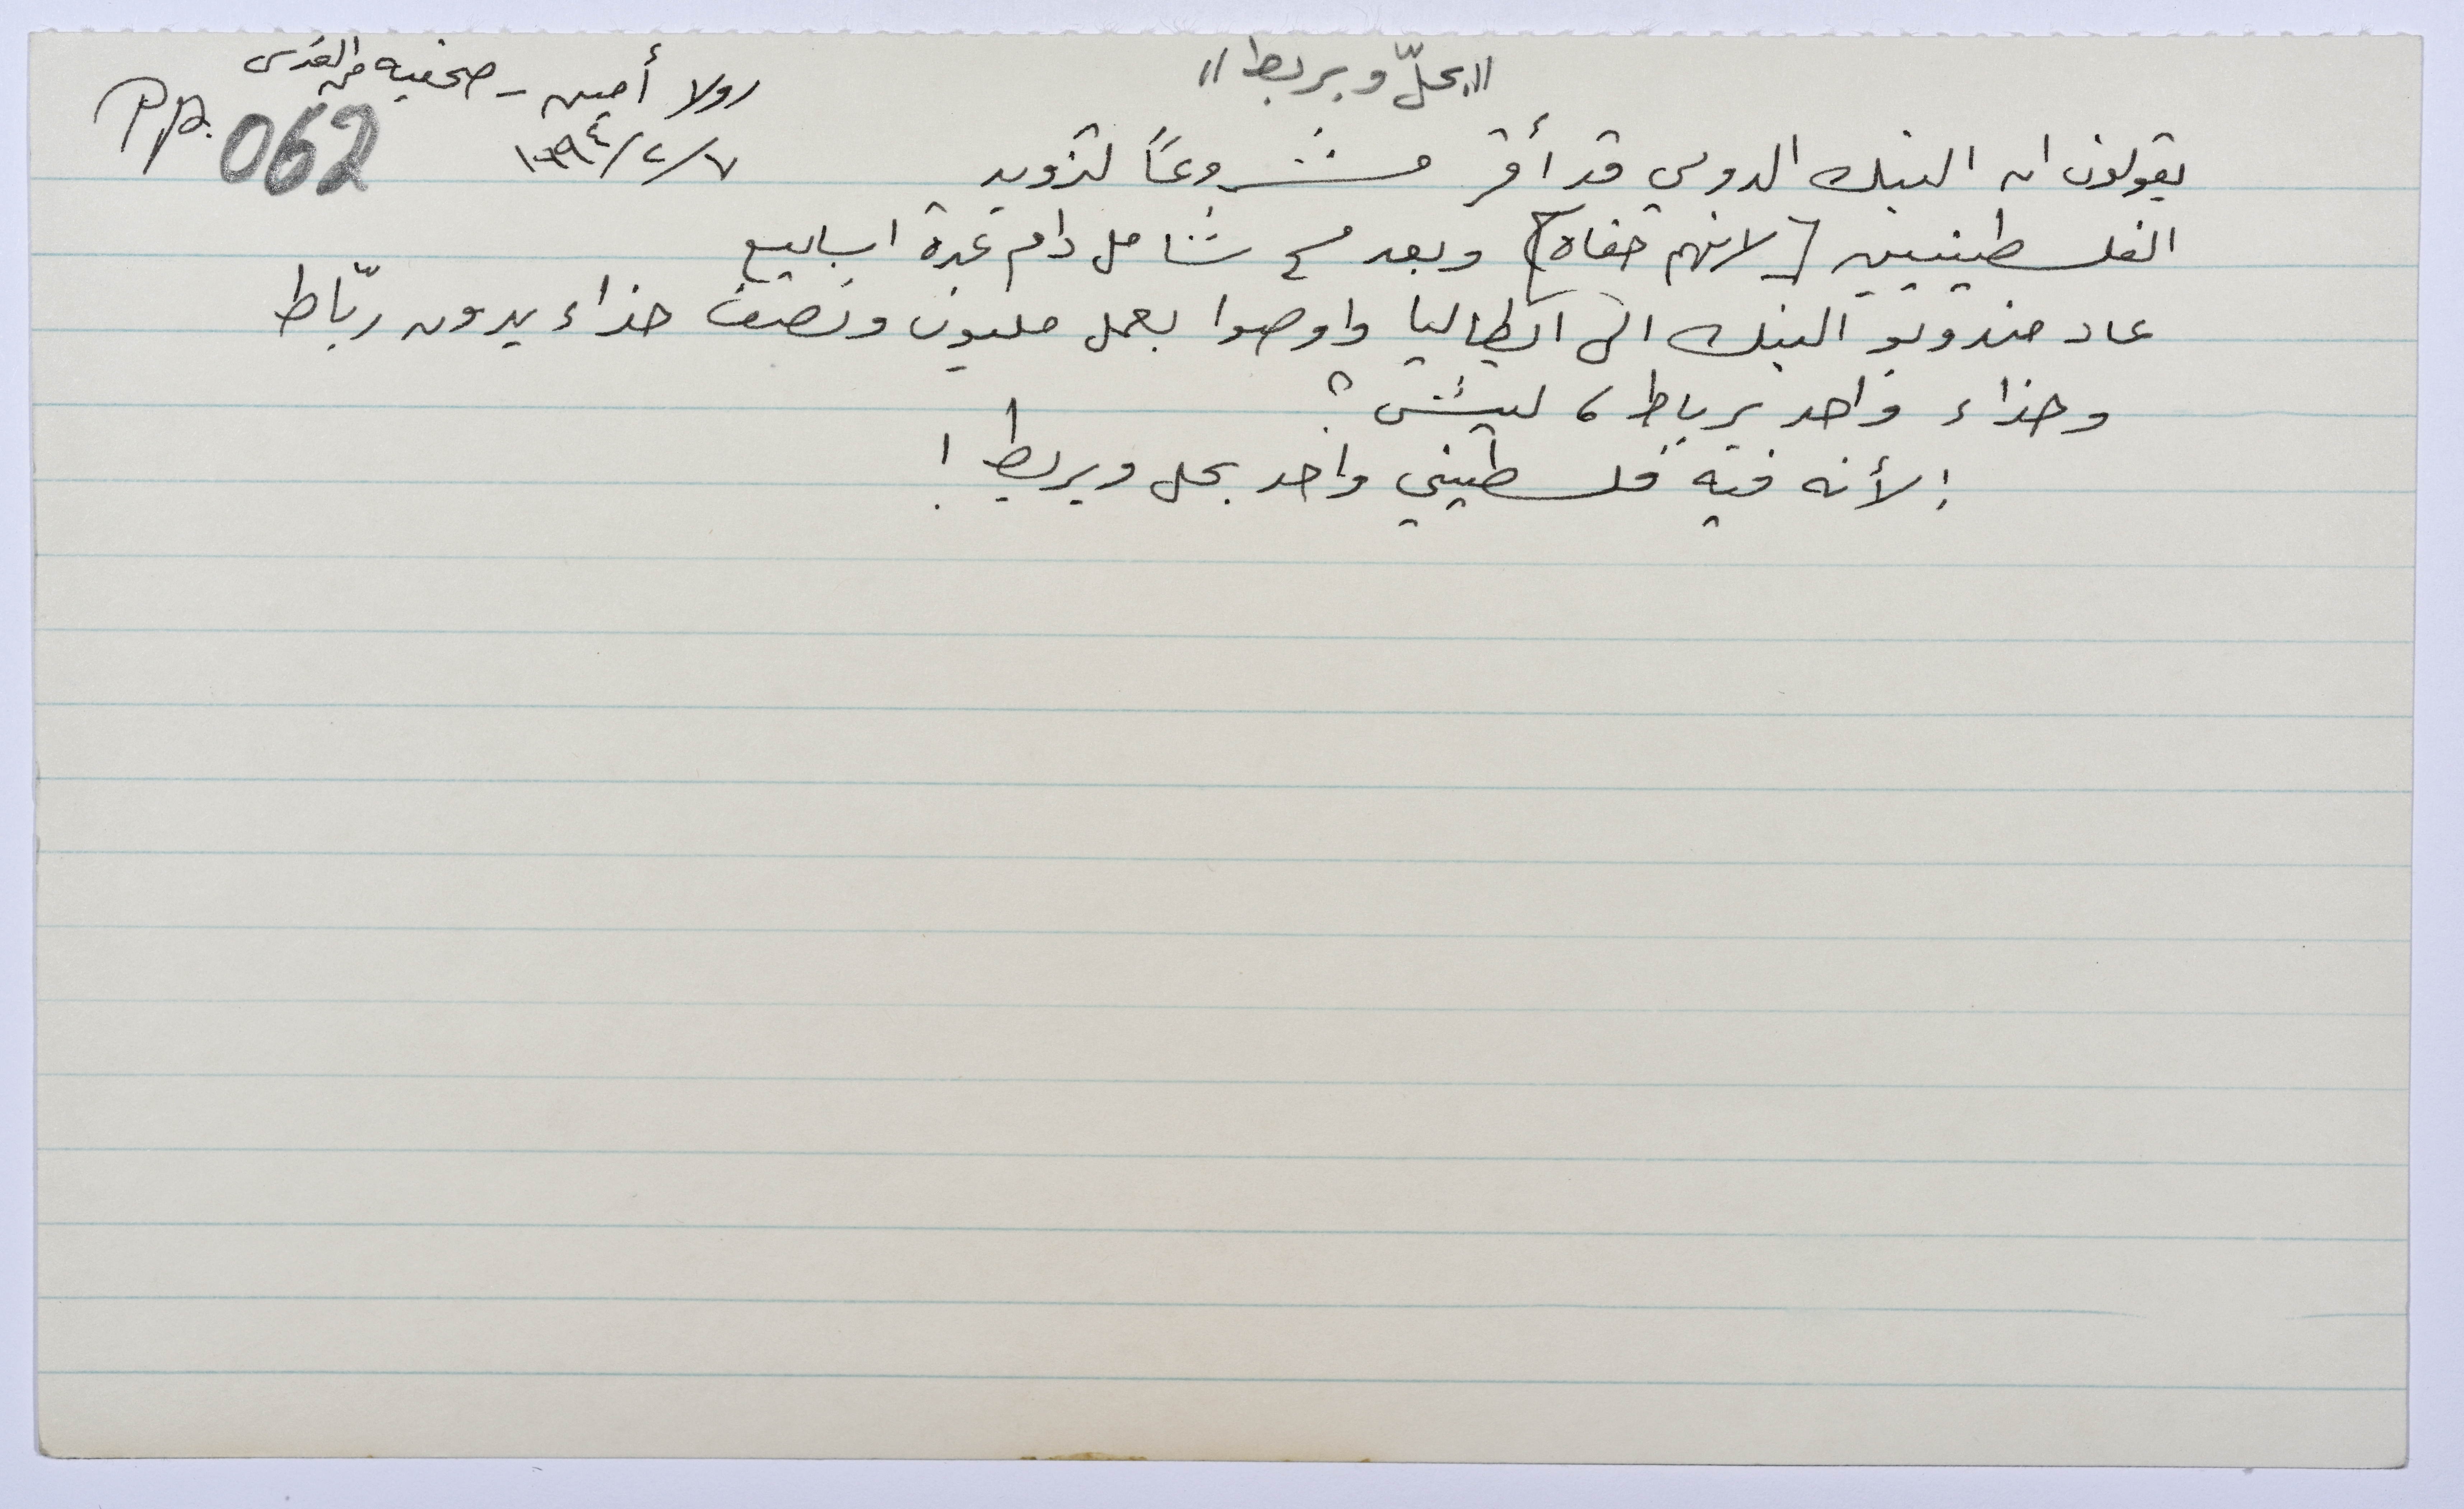 "بحلّ وبربط"
رولا أمين - صحفيه من القدس
٧/٢/١٩٩٤
PP. 062
يقولون ان البنك الدولي قد أقر مشروعاً لتزويد
الفلسطينيين [لانهم حفاه] وبعد مسح شامل دام عدة اسابيع
عاد مندوبو البنك الى ايطاليا واوصوا بعمل مليون ونصف حذاء بدون ربّاط
وحذاء واحد برباط، ليش؟
! لأنه فيه فلسطيني واحد بحل وبربط!